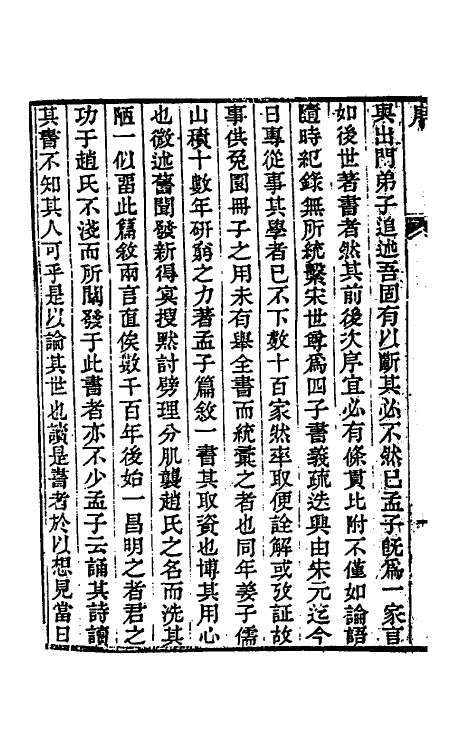 序
與出門弟子追述吾固有以斷其必不然已孟子旣爲一家言
如後世著書者然其前後次序宜必有條貫比附不僅如論語
隨時紀錄無所統繫宋世尊爲四子書義疏迭興由朱元迄今
日專從事其學者已不下數十百家然率取便詮解或攷証故
事供兔園冊子之用未有舉全書而統彙之者也同年姜子儒
山積十數年研窮之力著孟子篇敘一書其取資也博其用心
也微述舊聞發新得冥搜默討劈理分肌襲趙氏之名而洗其
陋一似畱此篇敘兩言直俟數千百年後始一昌明之者君之
功于趙氏不淺而所闡發于此書者亦不少孟子云誦其詩讀
其書不知其人可乎是以論其世也談是書者於以想見當日